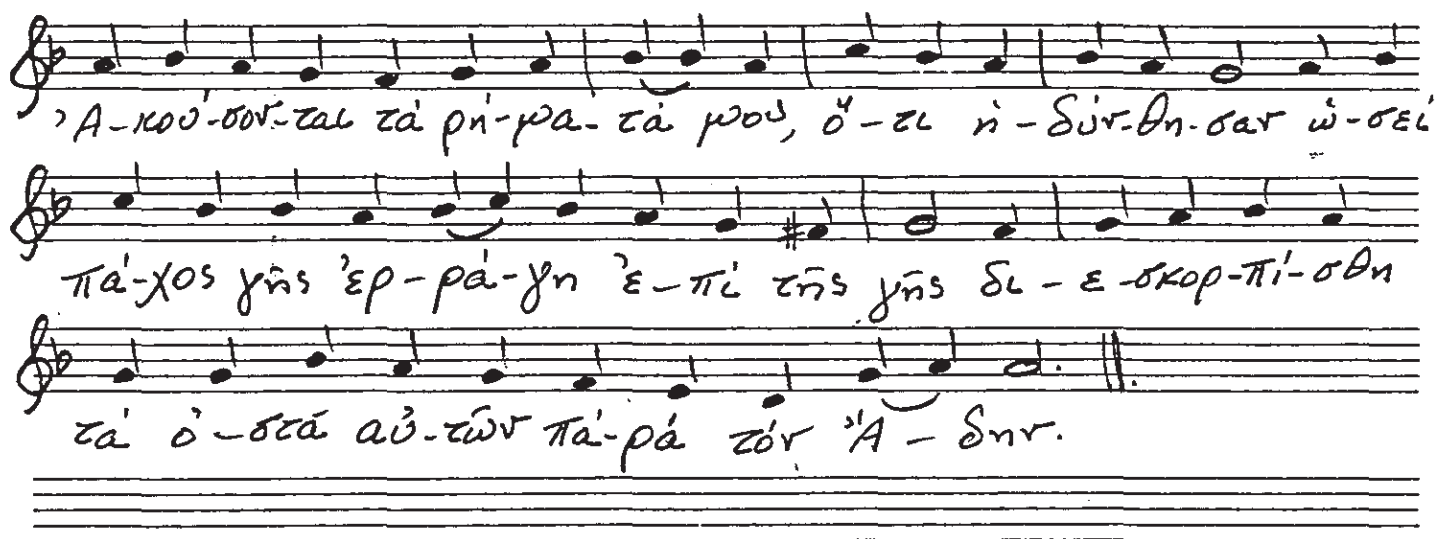 Ἀ-κού-σον-ται τά ρή-μα-τά μου, ὅ-τι ἡ-δύν-θη-σαν ὡ-σεί
πά-χος γῆς ἐρ-ρά-γη ἐ-πί τῆς γῆς δι-ε-σκορ-πί-σθη
τά ὀ-στά αὐ-τῶν πα-ρά τόν Ἅ-δην.